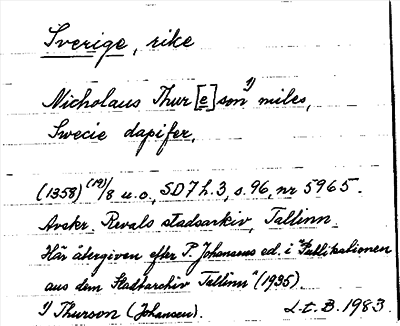 Sverige, rike
Nicholaus Thur[e]son ¹) miles,
Swecie dapifer.
(1358) (19)/8 u.o., SD 7 h. 3, s. 96, nr 5965.
Avskr. Revals stadsarkiv, Tallinn.
Här återgiven efter P. Johansens ed. i "Publikationen
aus dem Stadtarchiv Tallinn" (1935).
¹) Thurson (Johansen). L-t. B. 1983.